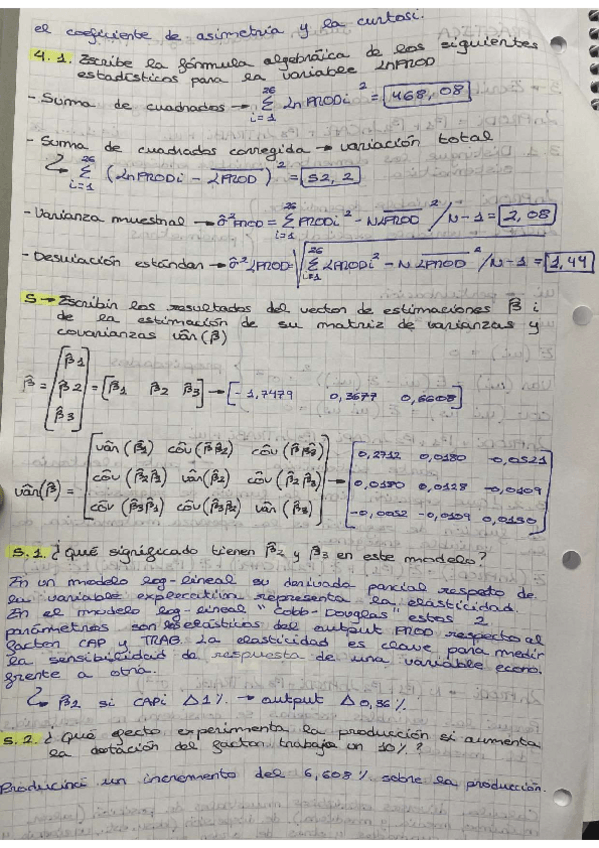 el coeficiente de asimetría y la curtosi.
4.1. Escribe la fórmula algebráica de los siguientes
estadísticos para la variable LnPROD
- Suma de cuadrados → 26 Σ i=1 LnPRODi² = 468,08
- Suma de cuadrados corregida → variación total
↳ 26 Σ i=1 (LnPRODi - LPROD)² = 52,2
- Varianza muestral → σ̂²PROD = 26 Σ i=1 PRODi² - N LPROD² / N-1 = 2,08
- Desviación estándar → σ̂²LPROD = √ 26 Σ i=1 LPRODi² - N LPROD² / N-1 = 1,44
5 → Escribir los resultados del vector de estimaciones β̂ i
de la estimación de su matriz de varianzas y
covarianzas vâr(β̂)
β̂ = [β̂1 β̂2 β̂3] = [β̂1 β̂2 β̂3] → [-1,7479 0,3677 0,6608]
vâr(β̂) = [vâr(β̂1) côv(β̂1β̂2) côv(β̂1β̂3)] → [0,2712 0,0180 -0,0521]
[côv(β̂2β̂1) vâr(β̂2) côv(β̂2β̂3)] [0,0180 0,0128 -0,0109]
[côv(β̂3β̂1) côv(β̂3β̂2) vâr(β̂3)] [-0,0052 -0,0109 0,0130]
5.1. ¿Qué significado tienen β̂2 y β̂3 en este modelo?
En un modelo log-lineal su derivada parcial respeto de
la variable representa la elasticidad.
En el modelo log-lineal "Cobb-Douglas" estos 2
parámetros son elásticos del output PROD respecto al
factor CAP y TRAB. La elasticidad es clave para medir
la sensibilidad de respuesta de una variable econo.
frente a otra.
↳ β̂2 si CAPi Δ1% → output Δ0,36%.
5.2. ¿Qué efecto experimenta la producción si aumenta
la dotación del factor trabajo un 10%?
Producirá un incremento del 6,608% sobre la producción.